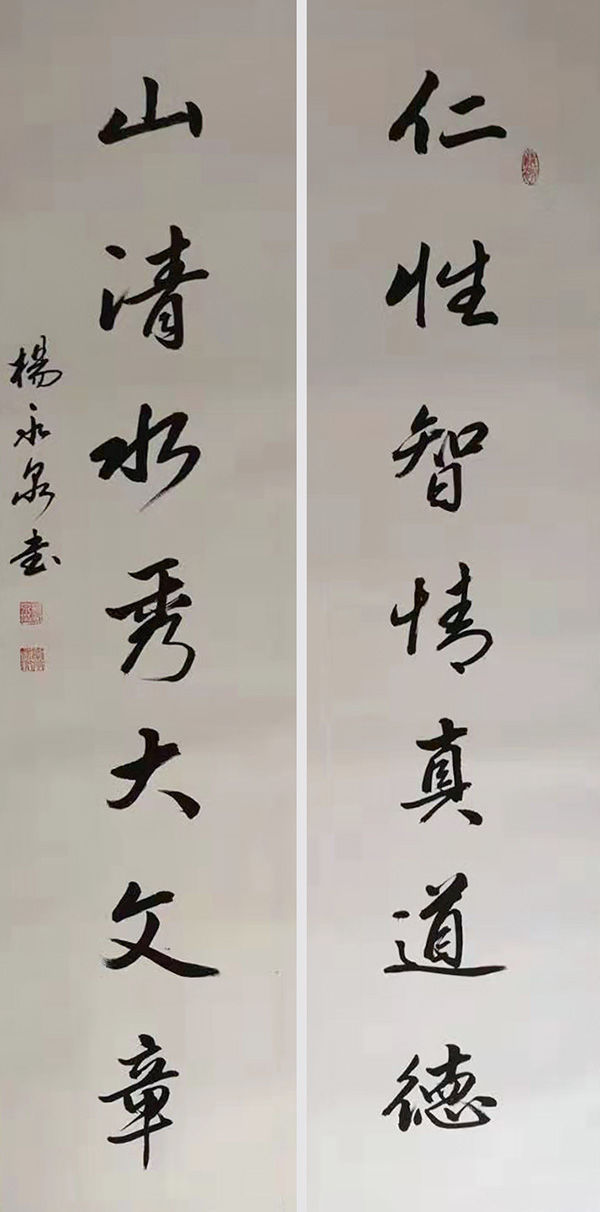 仁性智情真道德
山清水秀大文章
楊永泉書